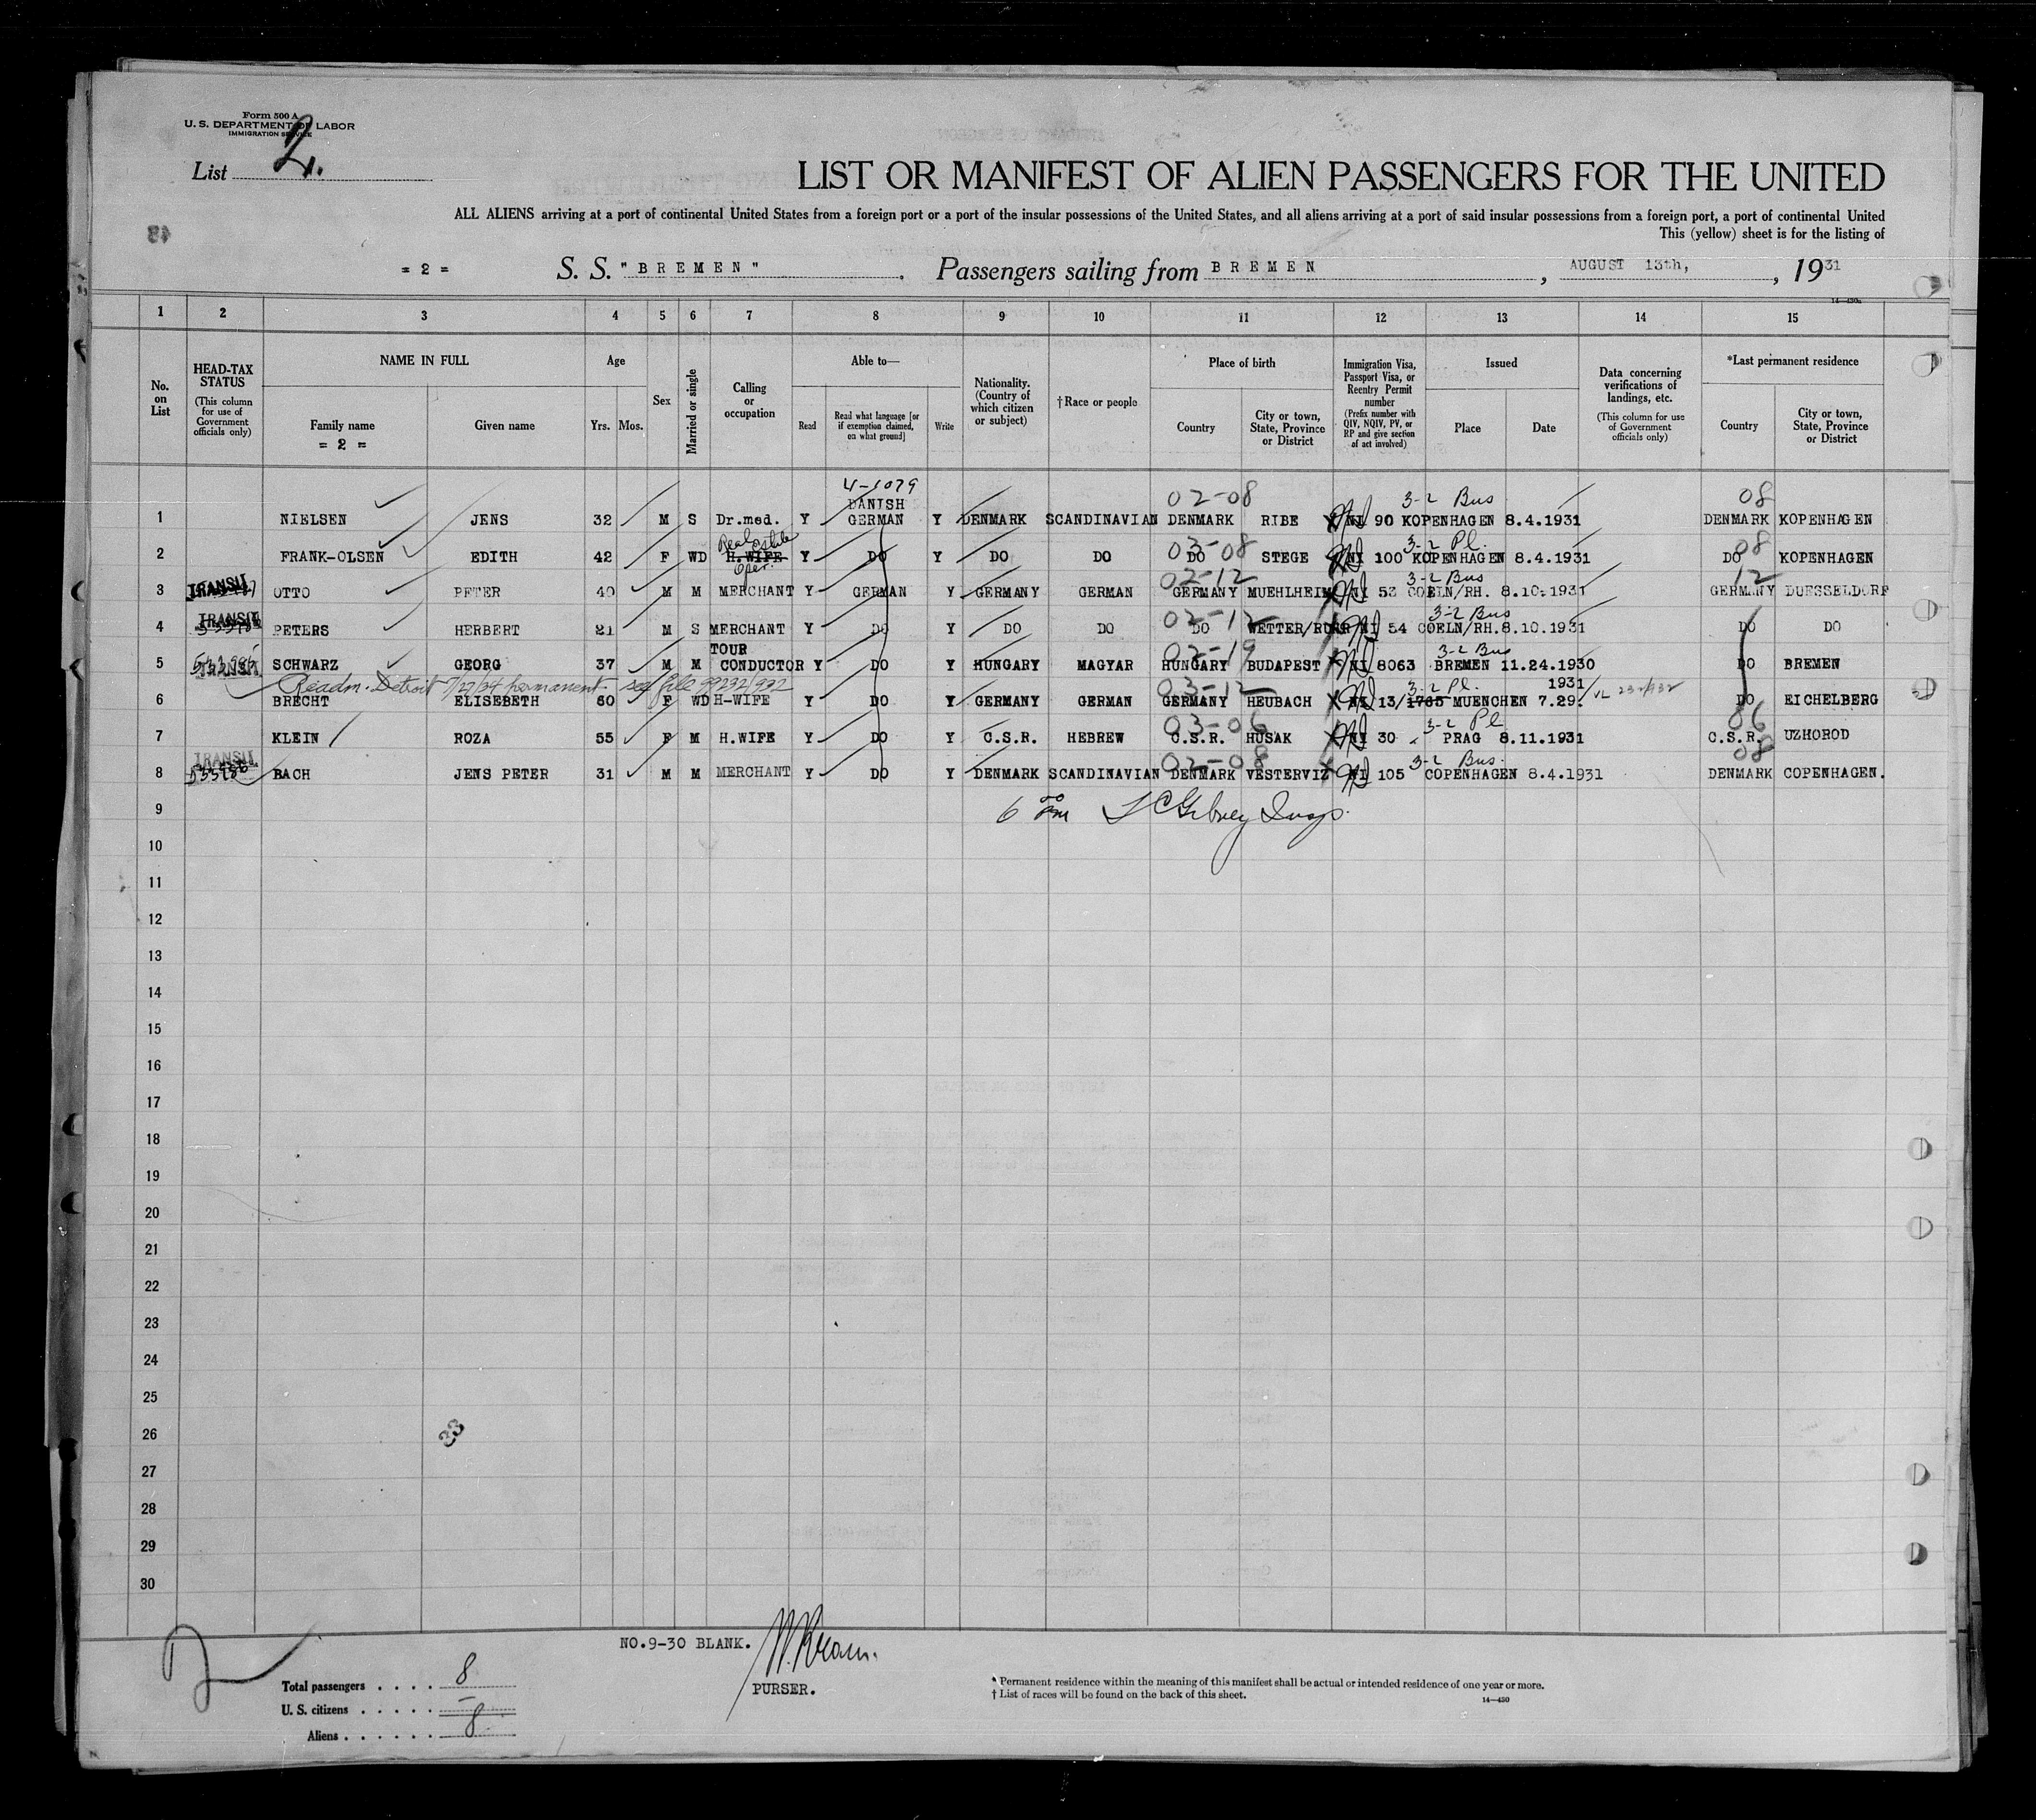 Form 500 A
U. S. DEPARTMENT OF LABOR
IMMIGRATION SERVICE
List 2.
LIST OR MANIFEST OF ALIEN PASSENGERS FOR THE UNITED
ALL ALIENS arriving at a port of continental United States from a foreign port or a port of the insular possessions of the United States, and all aliens arriving at a port of said insular possessions from a foreign port, a port of continental United
This (yellow) sheet is for the listing of
= 2 = S. S. "BREMEN" , Passengers sailing from BREMEN , AUGUST 13th, , 1931
14—430a
1 2 3 4 5 6 7 8 9 10 11 12 13 14 15
No. on List
HEAD-TAX STATUS
(This column for use of Government officials only)
NAME IN FULL
Family name
= 2 =
Given name
Age
Yrs. Mos.
Sex
Married or single
Calling or occupation
Able to—
Read
Read what language [or if exemption claimed, on what ground]
Write
Nationality. (Country of which citizen or subject)
†Race or people
Place of birth
Country
City or town, State, Province or District
Immigration Visa, Passport Visa, or Reentry Permit number
(Prefix number with QIV, NQIV, PV, or RP and give section of act involved)
Issued
Place
Date
Data concerning verifications of landings, etc.
(This column for use of Government officials only)
*Last permanent residence
Country
City or town, State, Province or District
4-1079
DANISH 02-08 3-2 Bus 08
1 NIELSEN JENS 32 M S Dr.med. Y GERMAN Y DENMARK SCANDINAVIAN DENMARK RIBE NI 90 KOPENHAGEN 8.4.1931 DENMARK KOPENHAGEN
Real estate 03-08 3-2 Pl. 08
2 FRANK-OLSEN EDITH 42 F WD H.WIFE Y DO Y DO DO DO STEGE NI 100 KOPENHAGEN 8.4.1931 DO KOPENHAGEN
Oper.
TRANSIT 02-12 3-2 Bus 12
3 OTTO PETER 40 M M MERCHANT Y GERMAN Y GERMANY GERMAN GERMANY MUEHLHEIM NI 53 COELN/RH. 8.10.1931 GERMANY DUESSELDORF
TRANSIT 02-12 3-2 Bus
4 PETERS HERBERT 21 M S MERCHANT Y DO Y DO DO DO WETTER/RUHR NI 54 COELN/RH. 8.10.1931 DO DO
TOUR 02-19 3-2 Bus
5 TRANSIT SCHWARZ GEORG 37 M M CONDUCTOR Y DO Y HUNGARY MAGYAR HUNGARY BUDAPEST NI 8063 BREMEN 11.24.1930 DO BREMEN
Readm. Detroit 7/27/34 permanent see file 99232/932 03-12 3-2 Pl. 1931
6 BRECHT ELISEBETH 60 F WD H-WIFE Y DO Y GERMANY GERMAN GERMANY HEUBACH NI 13/1765 MUENCHEN 7.29. DO EICHELBERG
03-06 3-2 Pl 06
7 KLEIN ROZA 55 F M H.WIFE Y DO Y C.S.R. HEBREW C.S.R. HUSAK NI 30 PRAG 8.11.1931 C.S.R. UZHOROD
TRANSIT 02-08 3-2 Bus. 08
8 BACH JENS PETER 31 M M MERCHANT Y DO Y DENMARK SCANDINAVIAN DENMARK VESTERVIZ NI 105 COPENHAGEN 8.4.1931 DENMARK COPENHAGEN.
9
10
11
12
13
14
15
16
17
18
19
20
21
22
23
24
25
26
27
28
29
30
23
NO.9-30 BLANK.
PURSER.
Total passengers . . . . 8
U. S. citizens . . . . . –
Aliens . . . . . . 8
* Permanent residence within the meaning of this manifest shall be actual or intended residence of one year or more.
† List of races will be found on the back of this sheet.
14—430